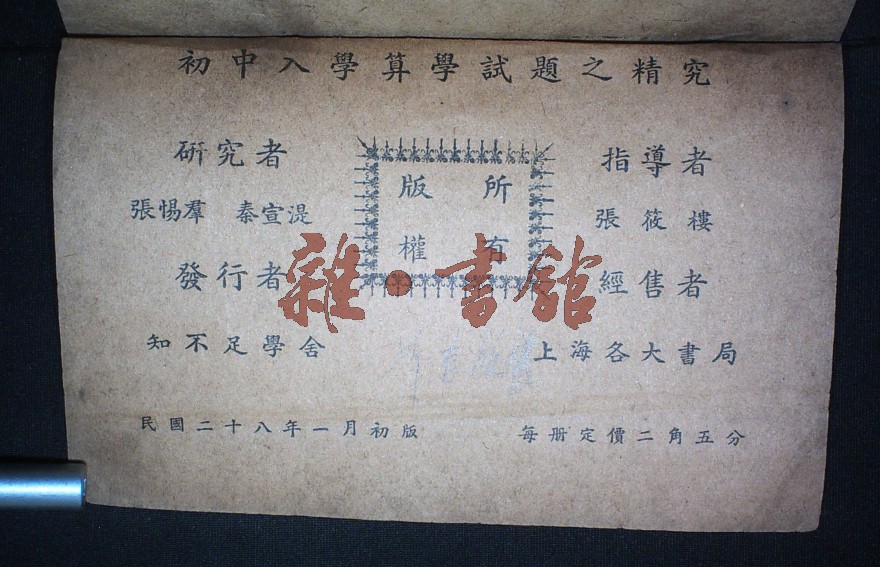 初中入學算學試題之精究
研究者
張惕羣 秦宣湜
發行者
知不足學舍
版權
所有
指導者
張筱樓
經售者
上海各大書局
民國二十八年一月初版
每册定價二角五分
雜·書館